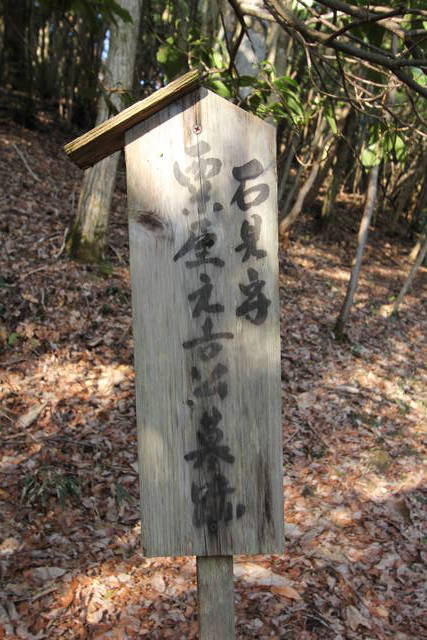 石見守
粟屋元吉公墓跡